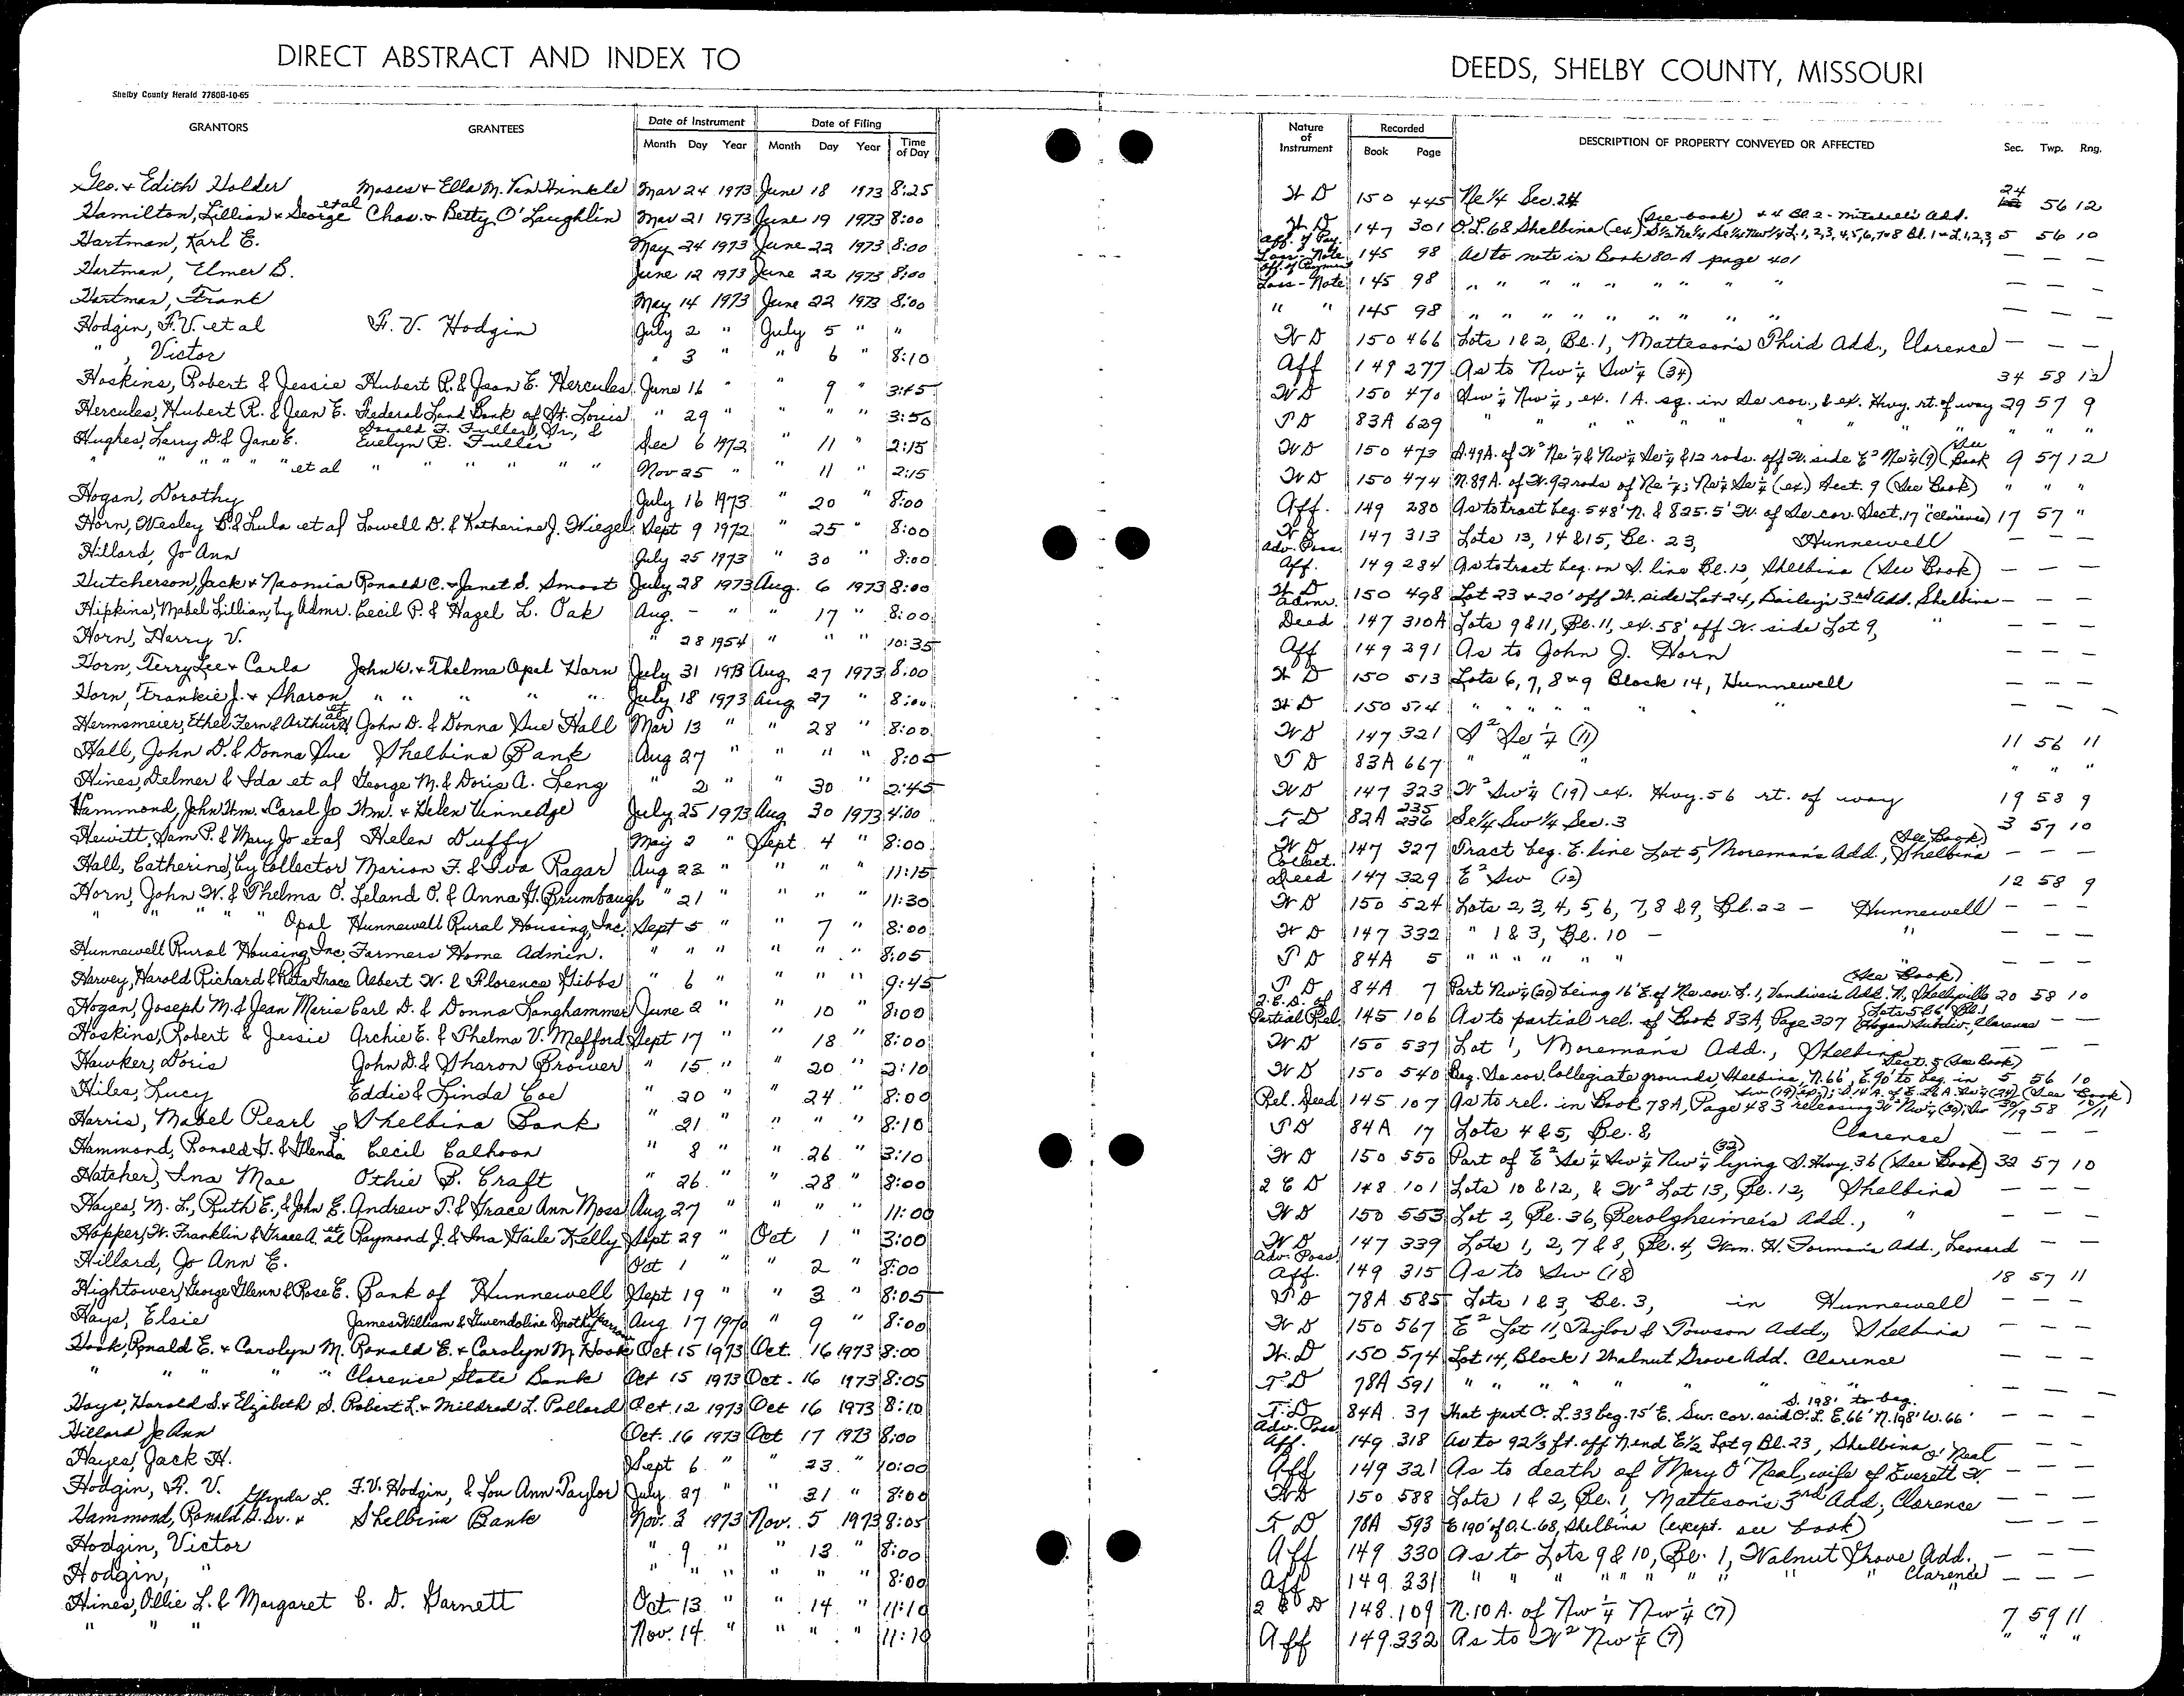 DIRECT ABSTRACT AND INDEX TO
Shelby County Herald 7760B-10-65
GRANTORS GRANTEES Date of Instrument Date of Filing
Month Day Year Month Day Year Time of Day
Geo. & Edith Holder Moses & Ella M. Van Winkle Mar 24 1973 June 18 1973 8:25
Hamilton, Lillian & George et al Chas. & Betty O'Laughlin Mar 21 1973 June 19 1973 8:00
Hartman, Karl E. May 24 1973 June 22 1973 8:00
Hartman, Elmer B. June 12 1973 June 22 1973 8:00
Hartman, Frank May 14 1973 June 22 1973 8:00
Hodgin, F.V. et al F. V. Hodgin July 2 " July 5 " "
" , Victor " 3 " " 6 " 8:10
Hoskins, Robert & Jessie Hubert R. & Jean E. Hercules June 16 " " 9 " 3:45
Hercules, Hubert R. & Jean E. Federal Land Bank of St. Louis " 29 " " " " 3:50
Hughes, Larry D. & Jane E. Donald F. Fuller, Sr., & Evelyn R. Fuller Dec 6 1972 " 11 " 2:15
" " " " " et al " " " " " " Nov 25 " " 11 " 2:15
Hogan, Dorothy July 16 1973 " 20 " 8:00
Horn, Wesley B. & Lula et al Lowell D. & Katherine J. Wiegel Sept 9 1972 " 25 " 8:00
Hillard, Jo Ann July 25 1973 " 30 " 8:00
Hutcherson, Jack & Naomia Ronald C. & Janet S. Smoot July 28 1973 Aug. 6 1973 8:00
Hipkins, Mabel Lillian, by Admr. Cecil P. & Hazel L. Oak Aug. - " " 17 " 8:00
Horn, Harry V. " 28 1954 " " " 10:35
Horn, Terry Lee & Carla John W. & Thelma Opal Horn July 31 1973 Aug 27 1973 8:00
Horn, Frankie J. & Sharon " " " " " July 18 1973 Aug 27 " 8:00
Hermsmeier, Ethel Fern & Arthur et al John D. & Donna Sue Hall Mar 13 " " 28 " 8:00
Hall, John D. & Donna Sue Shelbina Bank Aug 27 " " " " 8:05
Hines, Delmer & Ida et al George M. & Doris A. Leng " 2 " " 30 " 2:45
Hammond, John Wm. & Carol Jo Wm. & Helen Vinnedge July 25 1973 Aug 30 1973 4:00
Hewitt, Sam P. & Mary Jo et al Helen Duffy May 2 " Sept 4 " 8:00
Hall, Catherine, by Collector Marion F. & Iva Ragar Aug 23 " " " " 11:15
Horn, John W. & Thelma O. Leland O. & Anna G. Brumbaugh " 21 " " " " 11:30
" " " " Opal Hunnewell Rural Housing, Inc. Sept 5 " " 7 " 8:00
Hunnewell Rural Housing, Inc. Farmers Home Admin. " " " " " " 8:05
Harvey, Harold Richard & Reta Grace Albert W. & Florence Gibbs " 6 " " " " 9:45
Hogan, Joseph M. & Jean Marie Carl D. & Donna Langhammer June 2 " " 10 " 8:00
Hoskins, Robert & Jessie Archie E. & Thelma V. Mefford Sept 17 " " 18 " 8:00
Hawker, Doris John D. & Sharon Brower " 15 " " 20 " 2:10
Hiles, Lucy Eddie & Linda Coe " 20 " " 24 " 8:00
Harris, Mabel Pearl Shelbina Bank " 21 " " " " 8:10
Hammond, Ronald G. & Glenda Cecil Calhoon " 8 " " 26 " 3:10
Hatcher, Ina Mae Othie P. Craft " 26 " " 28 " 8:00
Hayes, M. L., Ruth E., & John E. Andrew T. & Grace Ann Moss Aug 27 " " " " 11:00
Hopper, W. Franklin & Grace A. et al Raymond J. & Ina Gaile Kelly Sept 29 " Oct 1 " 3:00
Hillard, Jo Ann E. Oct 1 " " 2 " 8:00
Hightower, George Glenn & Rose E. Bank of Hunnewell Sept 19 " " 3 " 8:05
Hays, Elsie James William & Gwendoline Dorothy Aug 17 1970 " 9 " 8:00
Hook, Ronald E. & Carolyn M. Ronald E. & Carolyn M. Hook Oct 15 1973 Oct. 16 1973 8:00
" " " " " Clarence State Bank Oct 15 1973 Oct. 16 1973 8:05
Hays, Harold S. & Elizabeth S. Robert L. & Mildred L. Pollard Oct. 12 1973 Oct 16 1973 8:10
Hillard Jo Ann Oct. 16 1973 Oct 17 1973 8:00
Hayes, Jack H. Sept 6 " " 23 " 10:00
Hodgin, F. V. F.V. Hodgin, & Lou Ann Taylor July 27 " " 31 " 8:00
Hammond, Ronald G. Sr. & Glenda L. Shelbina Bank Nov. 3 1973 Nov. 5 1973 8:05
Hodgin, Victor " 9 " " 13 " 8:00
Hodgin, " " " " " " " 8:00
Hines, Ollie L. & Margaret C. D. Garnett Oct. 13 " " 14 " 11:10
" " " Nov. 14 " " " " 11:10
DEEDS, SHELBY COUNTY, MISSOURI
Nature of Instrument Recorded DESCRIPTION OF PROPERTY CONVEYED OR AFFECTED Sec. Twp. Rng.
Book Page
W D 150 445 Ne 1/4 Sec. 24 24 56 12
W. D 147 301 O.L. 68 Shelbina (ex) S 1/2 Ne 1/4 Se 1/4 Nw 1/4 L. 1, 2, 3, 4, 5, 6, 7 & 8 Bl. 1 & L. 1, 2, 3, & 4 Bl. 2 - Mitchell's Add. (see book) 5 56 10
Aff. of Pay. Loss-Note 145 98 As to note in Book 80-A page 401 — — —
Aff. of Payment Loss-Note 145 98 " " " " " " " " — — —
" " 145 98 " " " " " " " " — — —
W D 150 466 Lots 1 & 2, Bl. 1, Matteson's Third Add., Clarence — — —
Aff 149 277 As to Nw 1/4 Sw 1/4 (34) 34 58 12
W D 150 470 Sw 1/4 Nw 1/4, ex. 1 A. sq. in Se cor., & ex. Hwy. rt. of way 29 57 9
T D 83A 629 " " " " " " " " "
W D 150 473 S. 49A. of W² Ne 1/4 & Nw 1/4 Se 1/4 & 12 rods. off W. side E² Ne 1/4 (9) (See Book 9 57 12
W D 150 474 N. 89 A. of W. 92 rods of Ne 1/4; Ne 1/4 Se 1/4 (ex.) Sect. 9 (See Book) " " "
Aff. 149 280 As to tract beg. 548' N. & 825.5' W. of Se cor. Sect. 17 "Clarence) 17 57 "
W D 147 313 Lots 13, 14 & 15, Bl. 23, Hunnewell — — —
Adv. Poss. Aff. 149 284 As to tract beg. on S. line Bl. 12, Shelbina (See Book) — — —
W D 150 498 Lot 23 & 20' off W. side Lot 24, Bailey's 3rd Add. Shelbina — — —
Admr. Deed 147 310A Lots 9 & 11, Bl. 11, ex. 58' off W. side Lot 9, " — — —
Aff 149 291 As to John J. Horn — — —
W D 150 513 Lots 6, 7, 8 & 9 Block 14, Hunnewell — — —
W D 150 514 " " " " " " " — — —
W D 147 321 S² Se 1/4 (11) 11 56 11
T D 83A 667 " " " " " "
W D 147 323 W² Sw 1/4 (19) ex. Hwy. 56 rt. of way 19 58 9
T D 82A 235 236 Se 1/4 Sw 1/4 Sec. 3 3 57 10
W D 147 327 Tract beg. E. line Lot 5, Moreman's Add., Shelbina (See Book) — — —
Collect. Deed 147 329 E² Sw (12) 12 58 9
W D 150 524 Lots 2, 3, 4, 5, 6, 7, 8 & 9, Bl. 22 - Hunnewell — — —
W D 147 332 " 1 & 3, Bl. 10 - " — — —
T D 84A 5 " " " " " " — — —
T D 84A 7 Part Nw 1/4 (20) being 16' E. of Ne cor. L. 1, Vandiver's Add. N. Shelbyville (See Book) 20 58 10
Q.E.D. of Partial Rel. 145 106 As to partial rel. of Book 83A, Page 327 (Lots 5 & 6 Bl. 1 Hogan Subdiv., Clarence — —
W D 150 537 Lot 1, Moreman's Add., Shelbina — — —
W D 150 540 Beg. Se cor. Collegiate grounds, Shelbina, N. 66', E. 90' to beg. in Sect. 5 (See Book) 5 56 10
Rel. Deed 145 107 As to rel. in Book 78A, Page 483 releasing W² Nw 1/4 (30); Sw (See Book)
T D 84A 17 Lots 4 & 5, Bl. 8, Clarence — — —
W D 150 550 Part of E² Se 1/4 Sw 1/4 Nw 1/4 (32) lying S. Hwy. 36 (See Book) 32 57 10
2 E D 148 101 Lots 10 & 12, & W² Lot 13, Bl. 12, Shelbina — — —
W D 150 553 Lot 2, Bl. 36, Berolzheimer's Add., " — — —
W D 147 339 Lots 1, 2, 7 & 8, Bl. 4, Wm. H. Forman's Add., Leonard — —
Adv. Poss. Aff. 149 315 As to Sw (18) 18 57 11
T D 78A 585 Lots 1 & 3, Bl. 3, in Hunnewell — — —
W D 150 567 E² Lot 11, Taylor & Towson Add., Shelbina — — —
W. D 150 574 Lot 14, Block 1 Walnut Grove Add. Clarence — — —
T D 78A 591 " " " " " " " — — —
T. D 84A 37 That part O. L. 33 beg. 75' E. Sw. cor. said O. L. E. 66' N. 198' W. 66' S. 198' to beg. — — —
Adv. Poss Aff. 149 318 As to 92 1/3 ft. off N end E 1/2 Lot 9 Bl. 23, Shelbina — — —
Aff 149 321 As to death of Mary O'Neal, wife of Everett W. O'Neal — — —
W D 150 588 Lots 1 & 2, Bl. 1, Matteson's 3rd Add., Clarence — — —
T D 78A 593 E 190' of O. L. 68, Shelbina (except. see book) — — —
Aff 149 330 As to Lots 9 & 10, Bl. 1, Walnut Grove Add. Clarence — — —
Aff 149 331 " " " " " " " " " " — — —
2 E D 148 109 N. 10 A. of Nw 1/4 Nw 1/4 (7) 7 59 11
Aff 149 332 As to W² Nw 1/4 (7) " " "